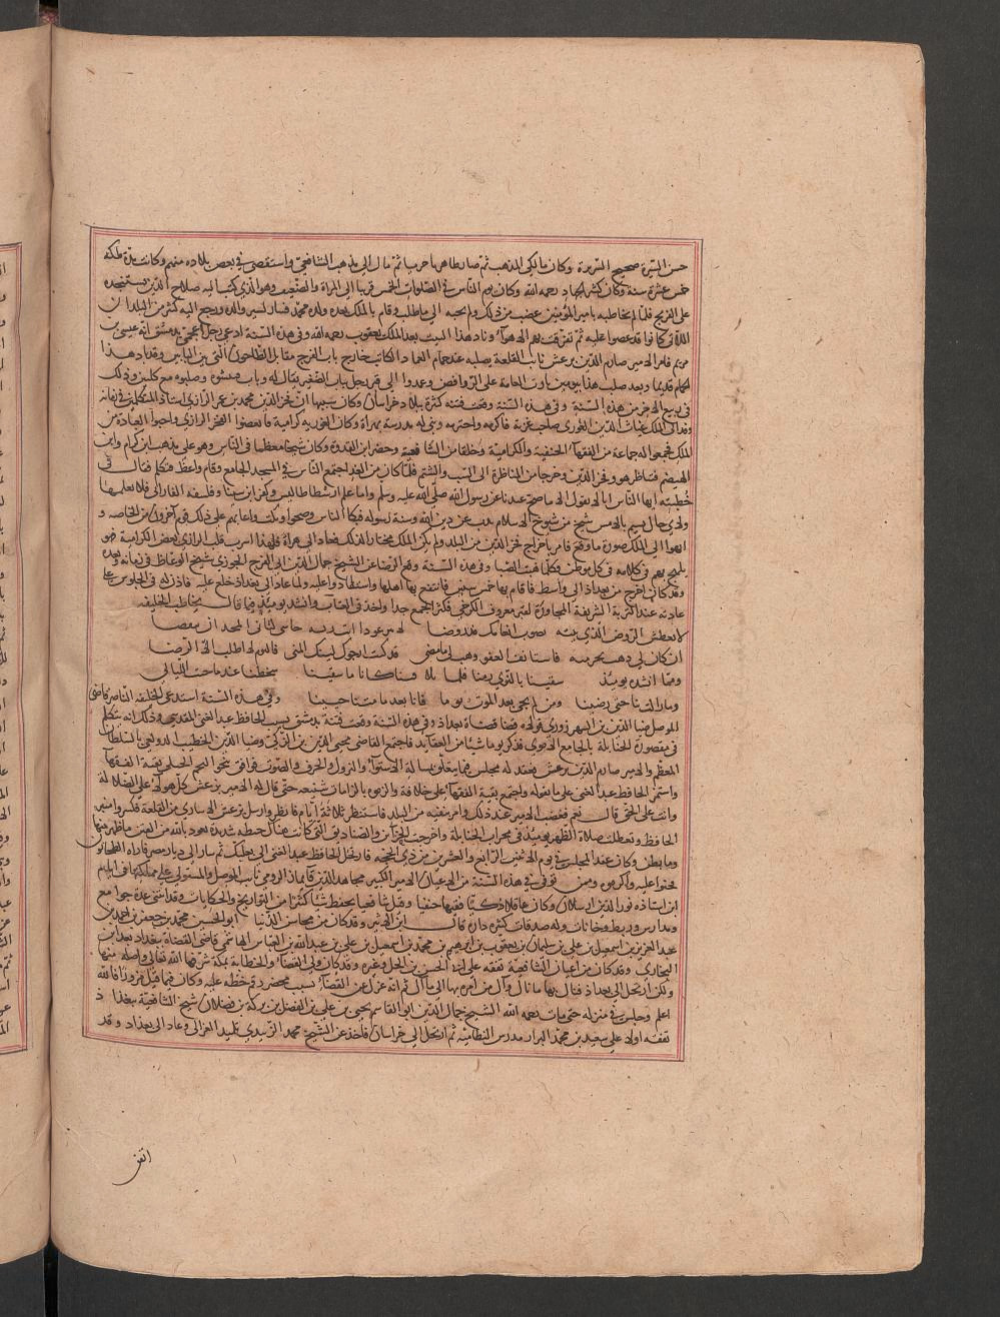 حسن السيرة صحيح السريرة وكان مالكي المذهب ثم صار ظاهريا حزميا ثم مال الى مذهب الشافعي واستقضى في بعض بلاده منهم وكانت مدة ملكه
خمس عشرة سنة وكان كثير الجهاد رحمه الله وكان يؤم الناس في الصلوات الخمس قريبا الى المراة والضعيف وهو الذي كتب اليه صلاح الدين يستنجده
على الفرنج فلما لم يخاطبه بامير المؤمنين غضب من ذلك ولم يجبه الى ما طلب وقام بالملك بعده ولده محمد فسار كسيرة والده ورجع اليه كثير من البلدان
اللاتي كانوا قد عصوا عليه ثم تفرقت بهم الاهواء وباد هذا البيت بعد الملك يعقوب رحمه الله وفي هذه السنة ادعى رجل اعجمي بدمشق انه عيسى بن
مريم فامر الامير صارم الدين برغش نائب القلعة بصلبه عند حمام العماد الكاتب خارج باب الفرج مقابل الطاحون التي بين البابين وقد باد هذا
الحمام قديما وبعد صلب هذا بيومين ثارت العامة على الروافض وعمدوا الى قبر رجل بباب الصغير يقال له وثاب فنبشوه وصلبوه مع كلبين وذلك
في ربيع الاخر من هذه السنة وفي هذه السنة وقعت فتنة كثيرة ببلاد خراسان وكان سببها ان فخر الدين محمد بن عمر الرازي استاذ المتكلمين في زمانه
وفد الى الملك غياث الدين الغوري صاحب غزنة فاكرمه واحترمه وبنى له مدرسة بهراة وكان الغورية كرامية فابغضوا الفخر الرازي واحبوا ابعاده من
الملك فجمعوا له جماعة من الفقهاء الحنفية والكرامية وخلقا من الشافعية وحضر ابن القدوة وكان شيخا معظما في الناس وهو على مذهب ابن كرام وابن
الهيصم فتناظر هو وفخر الدين وخرجا من المناظرة الى السب والشتم فلما كان من الغد اجتمع الناس في المسجد الجامع وقام واعظ فتكلم فقال في
خطبته ايها الناس انا لا نقول الا ما صح عندنا عن رسول الله صلى الله عليه وسلم واما علم ارسطاطاليس وكفر ابن سينا وفلسفة الفارابي فلا نعلمها
ولاي حال يشتم بالامس شيخ من شيوخ الاسلام يذب عن دين الله وسنة رسوله فبكا الناس وضجوا وبكت واعانهم على ذلك قوم اخرون من الخاصة و
انهوا الى الملك صورة ما وقع فامر باخراج فخر الدين من البلد فعاد الى هراة فلهذا اشرب قلب الرازي بغض الكرامية فهو
يلهج بهم في كلامه في كل موطن وفي هذه السنة وقع الرضا عن الشيخ جمال الدين ابي الفرج الجوزي شيخ الوعاظ في زمانه وبعده
وقد كان اخرج من بغداد الى واسط فاقام بها خمس سنين فانتفع بها اهلها واستفادوا عليه ولما عاد الى بغداد خلع عليه فاذن له في الجلوس على
عادته عند التربة الشريفة المجاورة لقبر معروف الكرخي فكثر الجمع جدا وانشد يومئذ فيما قال يخاطب الخليفة
لا تعطش الروض الذي بنيته بصوب انعامك قد روضا لا تبر عودا انت قد رشته حاشى لباني المجد ان ينقضا
ان كان لي ذنب تجرمته فاستانف العفو وهب لي ما مضى قد كنت ارجوك لنيل المنى فاليوم لا اطلب الا الرضا
ومما انشده يومئذ شقينا بالنوى زمنا فلما تلاقينا كانا ما شقينا سخطنا عند ما جنت الليالي
وما زالت بنا حتى رضينا ومن لم يحي بعد الموت يوما فانا بعد ما متنا حيينا وفي هذه السنة استدعى الخليفة الناصر قاضي
الموصل ضياء الدين بن الشهرزوري فولاه قضا قضاة بغداد وفي هذه السنة وقعت فتنة بدمشق بسبب الحافظ عبد الغني المقدسي وذلك انه يتكلم
في مقصورة الحنابلة بالجامع الاموي فذكر يوما شيئا من العقايد فاجتمع القاضي محيي الدين بن الزكي وضيا الدين الخطيب الدولعي بالسلطان
المعظم والامير صارم الدين برغش فعقد له مجلس فيما يتعلق بمسالة الاستواء والنزول والحرف والصوت فوافق النجم الحنبلي بقية الفقهاء
واستمر الحافظ عبد الغني على ما يقوله واجتمع بقية الفقهاء على خلافه والزموه بالزامات شنيعة حتى قال له الامير برغش كل هؤلاء على الضلالة
وانت على الحق قال نعم فغضب الامير عند ذلك وامر بنفيه من البلد فاستنظر ثلاثة ايام فانظر وارسل برغش الاسارى من القلعة فكسروا منبر
الحافظ وتعطلت صلاة الظهر يومئذ في محراب الحنابلة واخرجت الخزائن والصناديق التي كانت هناك وحبطة شديدة نعوذ بالله من الفتن ما ظهر منها
وما بطن وكان عقد المجلس يوم الاثنين الرابع والعشرين من ذي الحجة فارتحل الحافظ عبد الغني الى بعلبك ثم سار الى ديار مصر فاواه الطحانون
فحنوا عليه واكرموه وممن توفي في هذه السنة من الاعيان الامير الكبير مجاهد الدين قايماز الرومي نائب الموصل والمستولي على مملكتها في ايام
ابن استاذه نور الدين ارسلان وكان عاقلا ذكيا فقيها حنفيا وقيل شافعيا يحفظ شيئا كثيرا من التواريخ والحكايات وقد ابتنى عدة جوامع
ومدارس وربط وخانات وله صدقات كثيرة دارة قال ابن الاثير وقد كان من محاسن الدنيا ابو الحسن محمد بن جعفر بن احمد بن
عبد العزيز بن اسمعيل بن علي بن سليمان بن يعقوب بن ابراهيم بن محمد بن اسمعيل بن علي بن عبد الله بن العباس الهاشمي قاضي القضاة ببغداد بعد ابن
البخاري وقد كان من اعيان الشافعية تفقه على ابي الحسن بن الخل وغيره وقد كان ولي القضاء والخطابة بمكة شرفها الله تعالى واصله منها
ولكن ارتحل الى بغداد فنال بها ما نال وال من امره بها الى ما ال ثم انه عزل عن القضاء بسبب محضر رقم خطه عليه وكان فيما قيل مزورا فالله
اعلم وجلس في منزله حتى مات رحمه الله الشيخ جمال الدين ابو القاسم يحيى بن علي بن الفضل بن بركة بن فضلان شيخ الشافعية ببغداد
تفقه اولا على سعيد بن محمد البزار مدرس النظامية ثم ارتحل الى خراسان فاخذ عن الشيخ محمد الزبيدي تلميذ الغزالي وعاد الى بغداد وقد
اقتبس